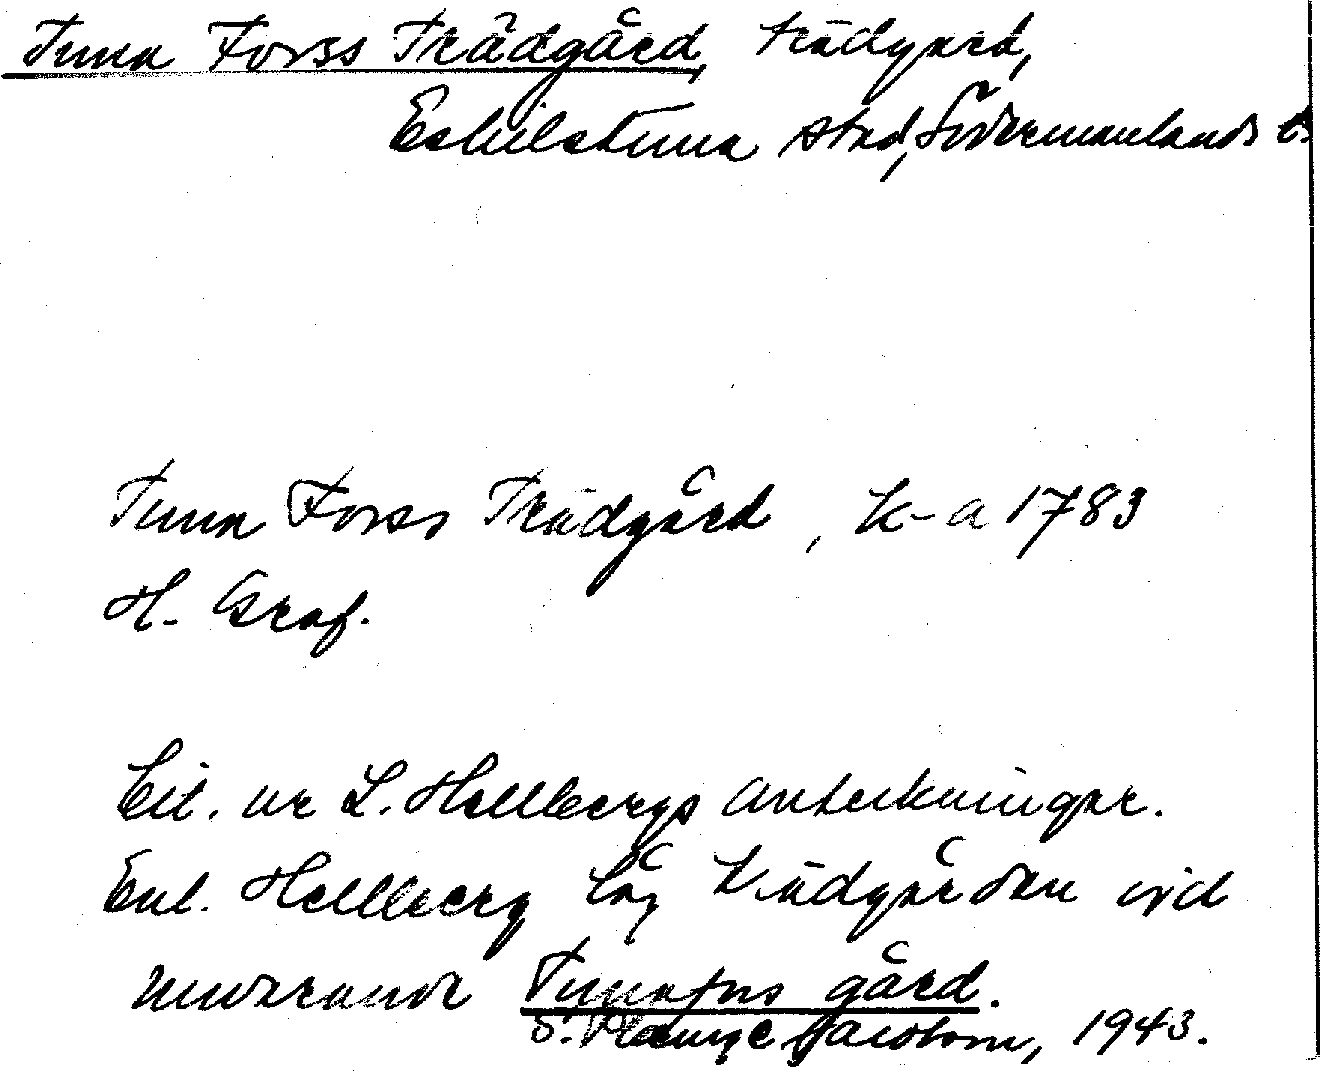 Tuna Forss Trädgård, trädgård,
Eskilstuna stad, Södermanlands l.
Tuna Forss Trädgård, k-a 1783
H. Graf.
Cit. ur L. Hellbergs anteckningar.
Enl. Hellberg låg trädgården vid
nuvarande Tunafors gård.
S. Jacobson, 1943.